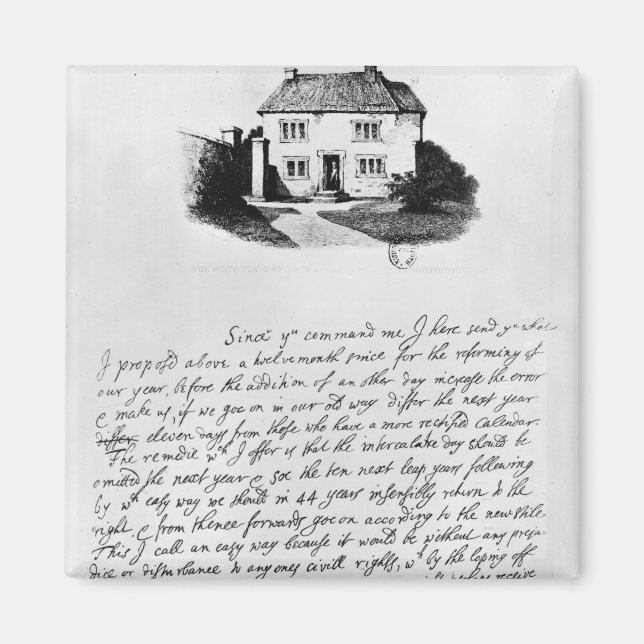 Since yu command me I here send yu what
I propos'd above a twelve month since for the reforming of
our year, before the addition of an other day increase the error
& make us, if we goe on in our old way differ the next year
differ eleven days from those who have a more rectified Calendar.
The remedie wch I offer is that the intercalate day should be
omitted the next year & soe the ten next leap years following
by wch easy way we should in 44 years insensibly return to the
right. & from thence forwards goe on according to the new stile.
This I call an easy way because it would be without any preju-
dice or disturbance to any ones civill rights, wch by the loping off
receive